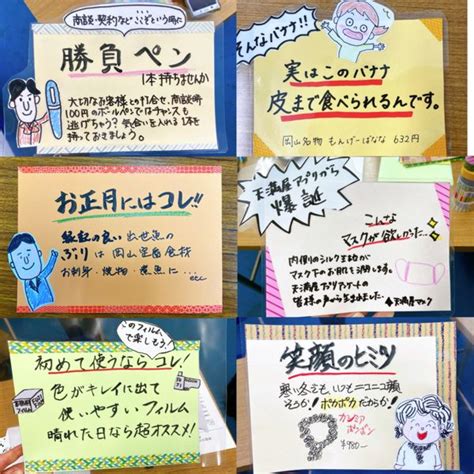 商談・契約など ここぞという時に
勝負ペン
1本持ちませんか
大切なお客様との打合せ、商談時
100円のボールペンではチャンスも
逃げちゃう?気合いを入れる1本を
持っておきましょう。
そんなバナナ!!
実はこのバナナ
皮まで食べられるんです。
岡山名物 もんげーばなな 632円
お正月にはコレ!!
縁起の良い 出世魚の
ぶりは 岡山定番食材
お刺身・焼物・煮魚に…
etc
天満屋アプリから
爆誕
こんな
マスクが欲しかった…
内側のシルク生地が
マスク下のお肌も潤します。
天満屋アプリアンケートの
皆様の声から生まれました。
天満屋マスク
このフィルムで楽しもう!
初めて使うならコレ!
色がキレイに出て
使いやすいフィルム
晴れた日なら超オススメ!
笑顔のヒミツ
寒い冬でも、いつもニコニコ顔
そうか!ポカポカだからか!
カシミア
¥980